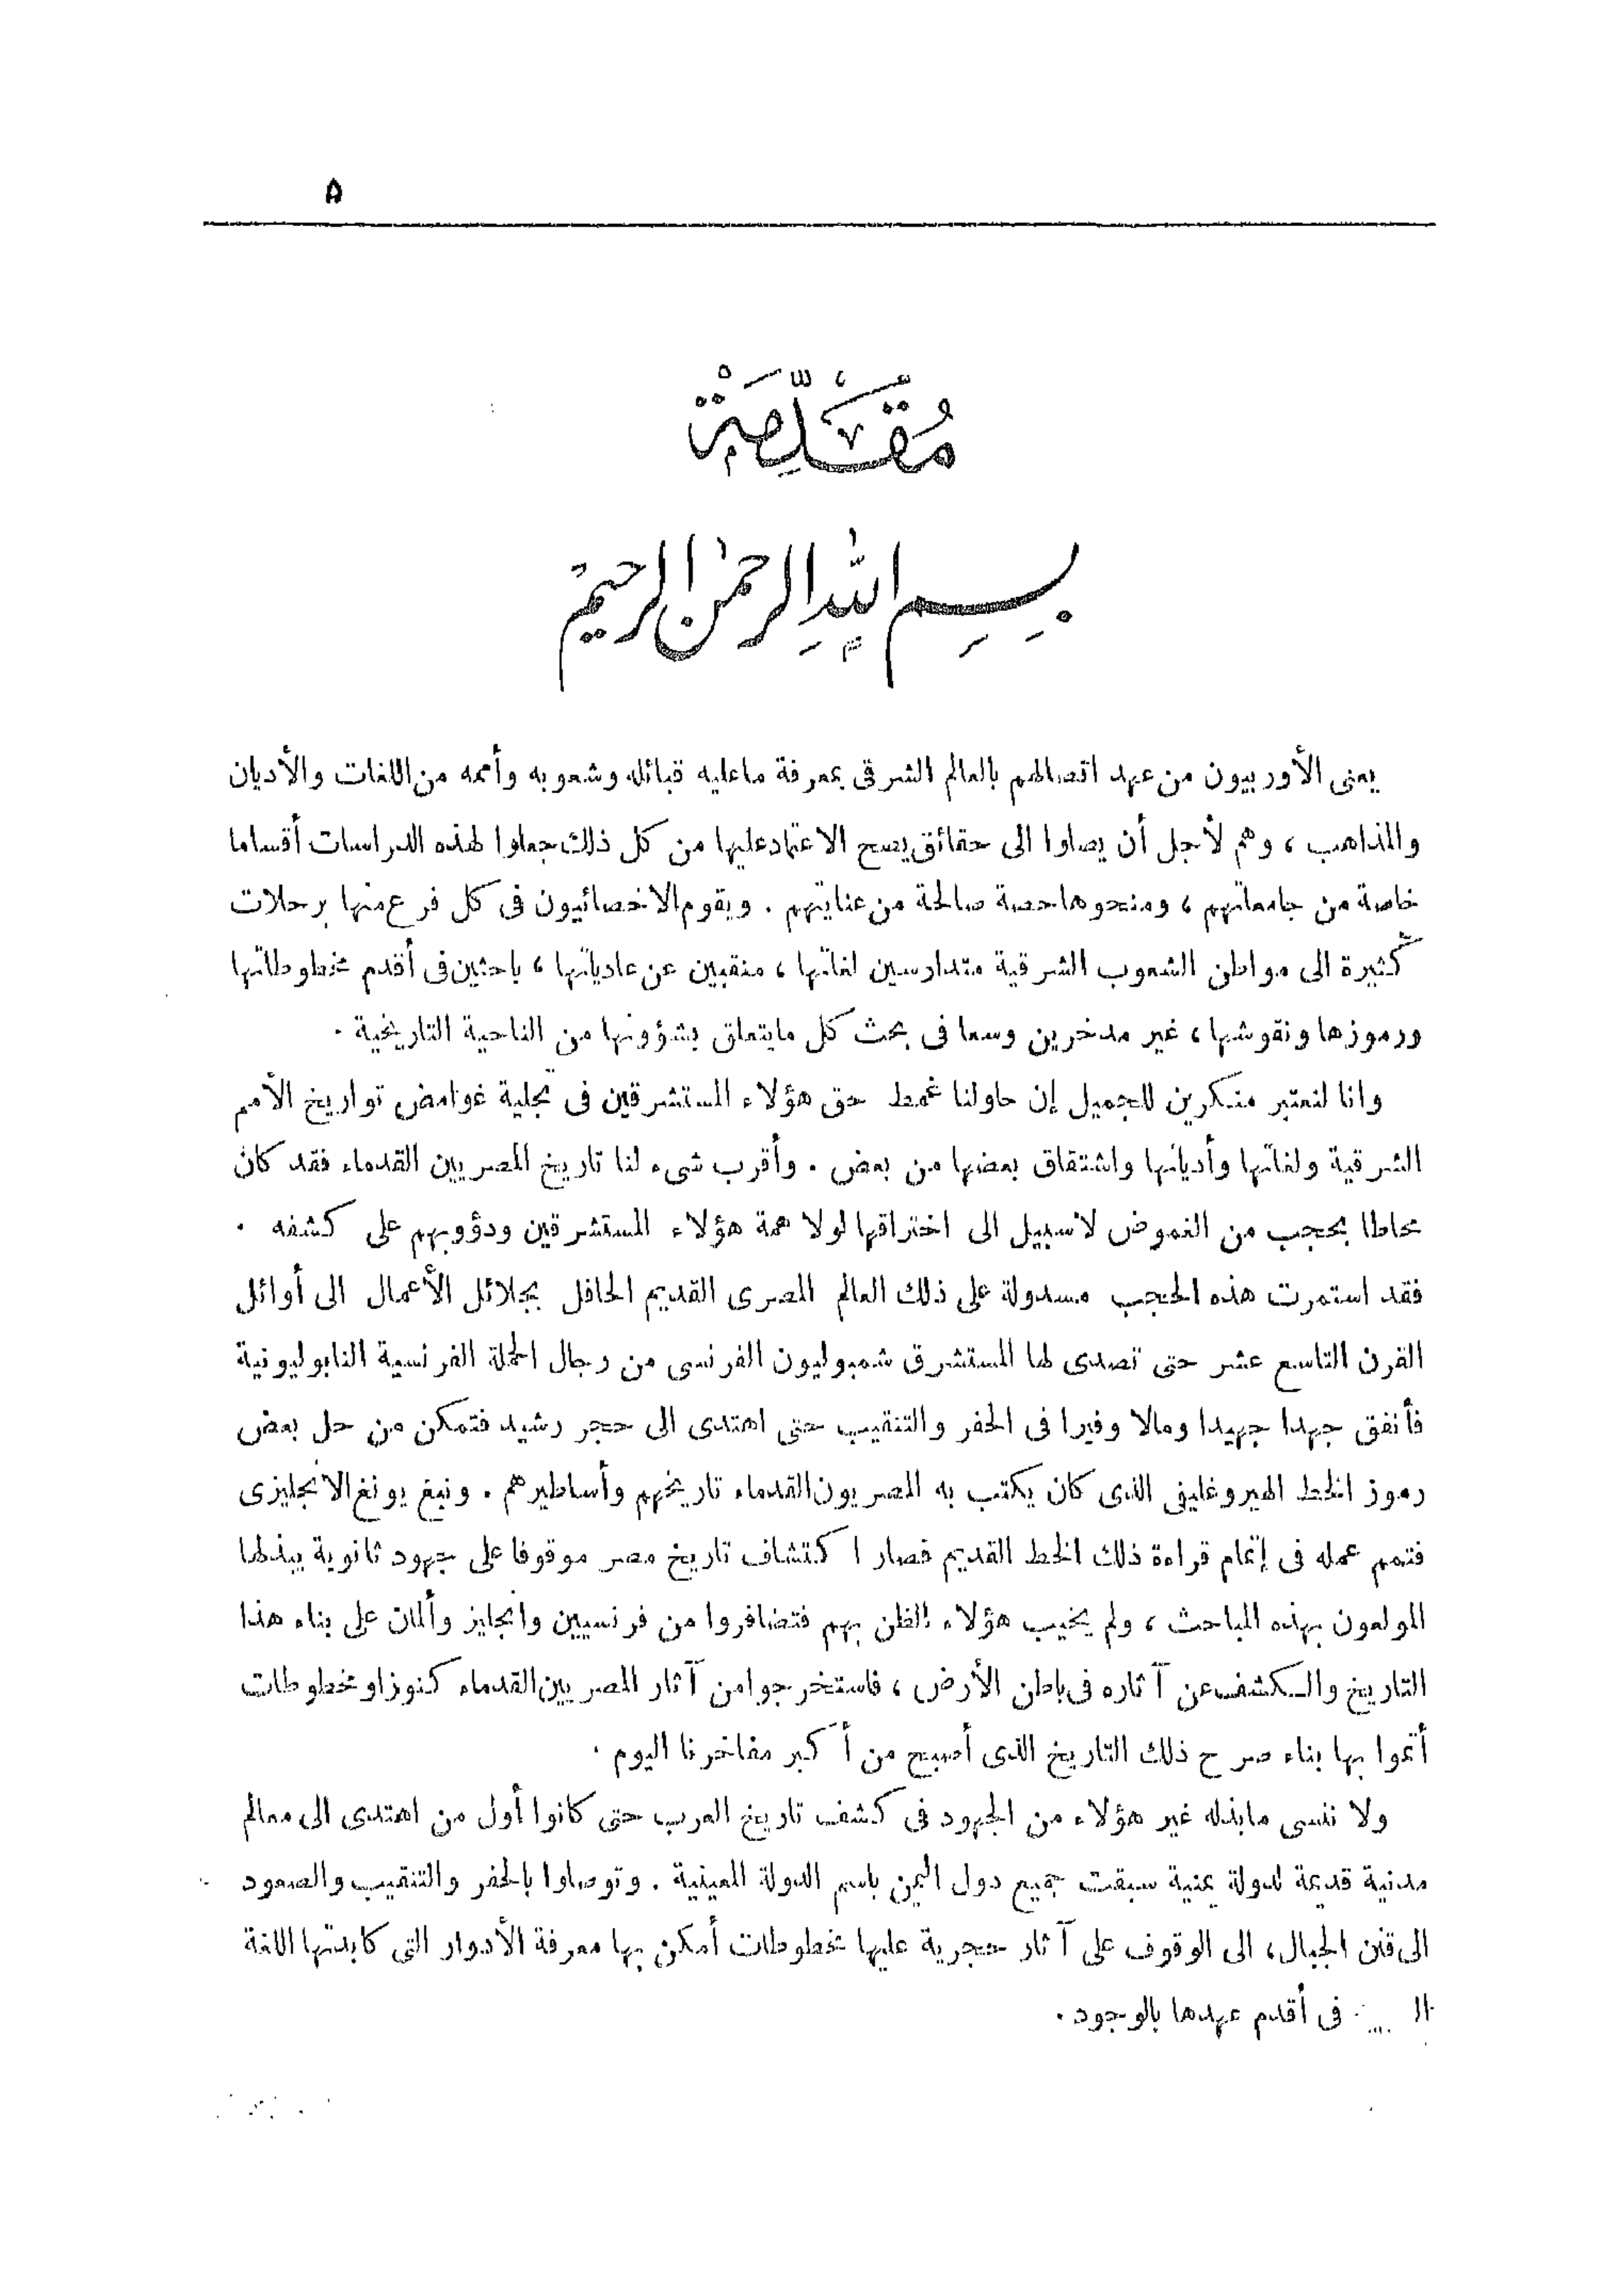 ٥
مُقَدِّمَةْ
بِسِمِ اللهِ الرحمن الرحيم
يعنى الأوربيون من عهد اتصالهم بالعالم الشرقى بمعرفة ماعليه قبائله وشعوبه وأممه من اللغات والأديان
والمذاهب ، وهم لأجل أن يصلوا الى حقائق يصح الاعتماد عليها من كل ذلك جعلوا لهذه الدراسات أقساما
خاصة من جامعاتهم ، ومنحوها حصة صالحة من عنايتهم . ويقوم الاخصائيون فى كل فرع منها برحلات
كثيرة الى مواطن الشعوب الشرقية متدارسين لغاتها ، منقبين عن عادياتها ، باحثين فى أقدم مخطوطاتها
ورموزها ونقوشها ، غير مدخرين وسعا فى بحث كل مايتعلق بشؤونها من الناحية التاريخية .
وانا لنعتبر منكرين للجميل إن حاولنا غمط حق هؤلاء المستشرقين فى تجلية غوامض تواريخ الأمم
الشرقية ولغاتها وأديانها واشتقاق بعضها من بعض . وأقرب شىء لنا تاريخ المصريين القدماء فقد كان
محاطا بحجب من الغموض لاسبيل الى اختراقها لولا همة هؤلاء المستشرقين ودؤوبهم على كشفه .
فقد استمرت هذه الحجب مسدولة على ذلك العالم المصرى القديم الحافل بجلائل الأعمال الى أوائل
القرن التاسع عشر حتى تصدى لها المستشرق شمبوليون الفرنسى من رجال الحملة الفرنسية النابوليونية
فأنفق جهدا جهيدا ومالا وفيرا فى الحفر والتنقيب حتى اهتدى الى حجر رشيد فتمكن من حل بعض
رموز الخط الهيروغليفى الذى كان يكتب به المصريون القدماء تاريخهم وأساطيرهم . ونبغ يونغ الانجليزى
فتمم عمله فى إتمام قراءة ذلك الخط القديم فصار اكتشاف تاريخ مصر موقوفا على جهود ثانوية يبذلها
المولعون بهذه المباحث ، ولم يخيب هؤلاء الظن بهم فتضافروا من فرنسيين وانجليز وألمان على بناء هذا
التاريخ والكشف عن آثاره فى باطن الأرض ، فاستخرجوا من آثار المصريين القدماء كنوزا ومخطوطات
أتموا بها بناء صرح ذلك التاريخ الذى أصبح من أكبر مفاخرنا اليوم .
ولا ننسى مابذله غير هؤلاء من الجهود فى كشف تاريخ العرب حتى كانوا أول من اهتدى الى معالم
مدنية قديمة لدولة يمنية سبقت جميع دول اليمن باسم الدولة المعينية . وتوصلوا بالحفر والتنقيب والصعود
الى قنن الجبال ، الى الوقوف على آثار حجرية عليها مخطوطات أمكن بها معرفة الأدوار التى كابدتها اللغة
فى أقدم عهدها بالوجود .